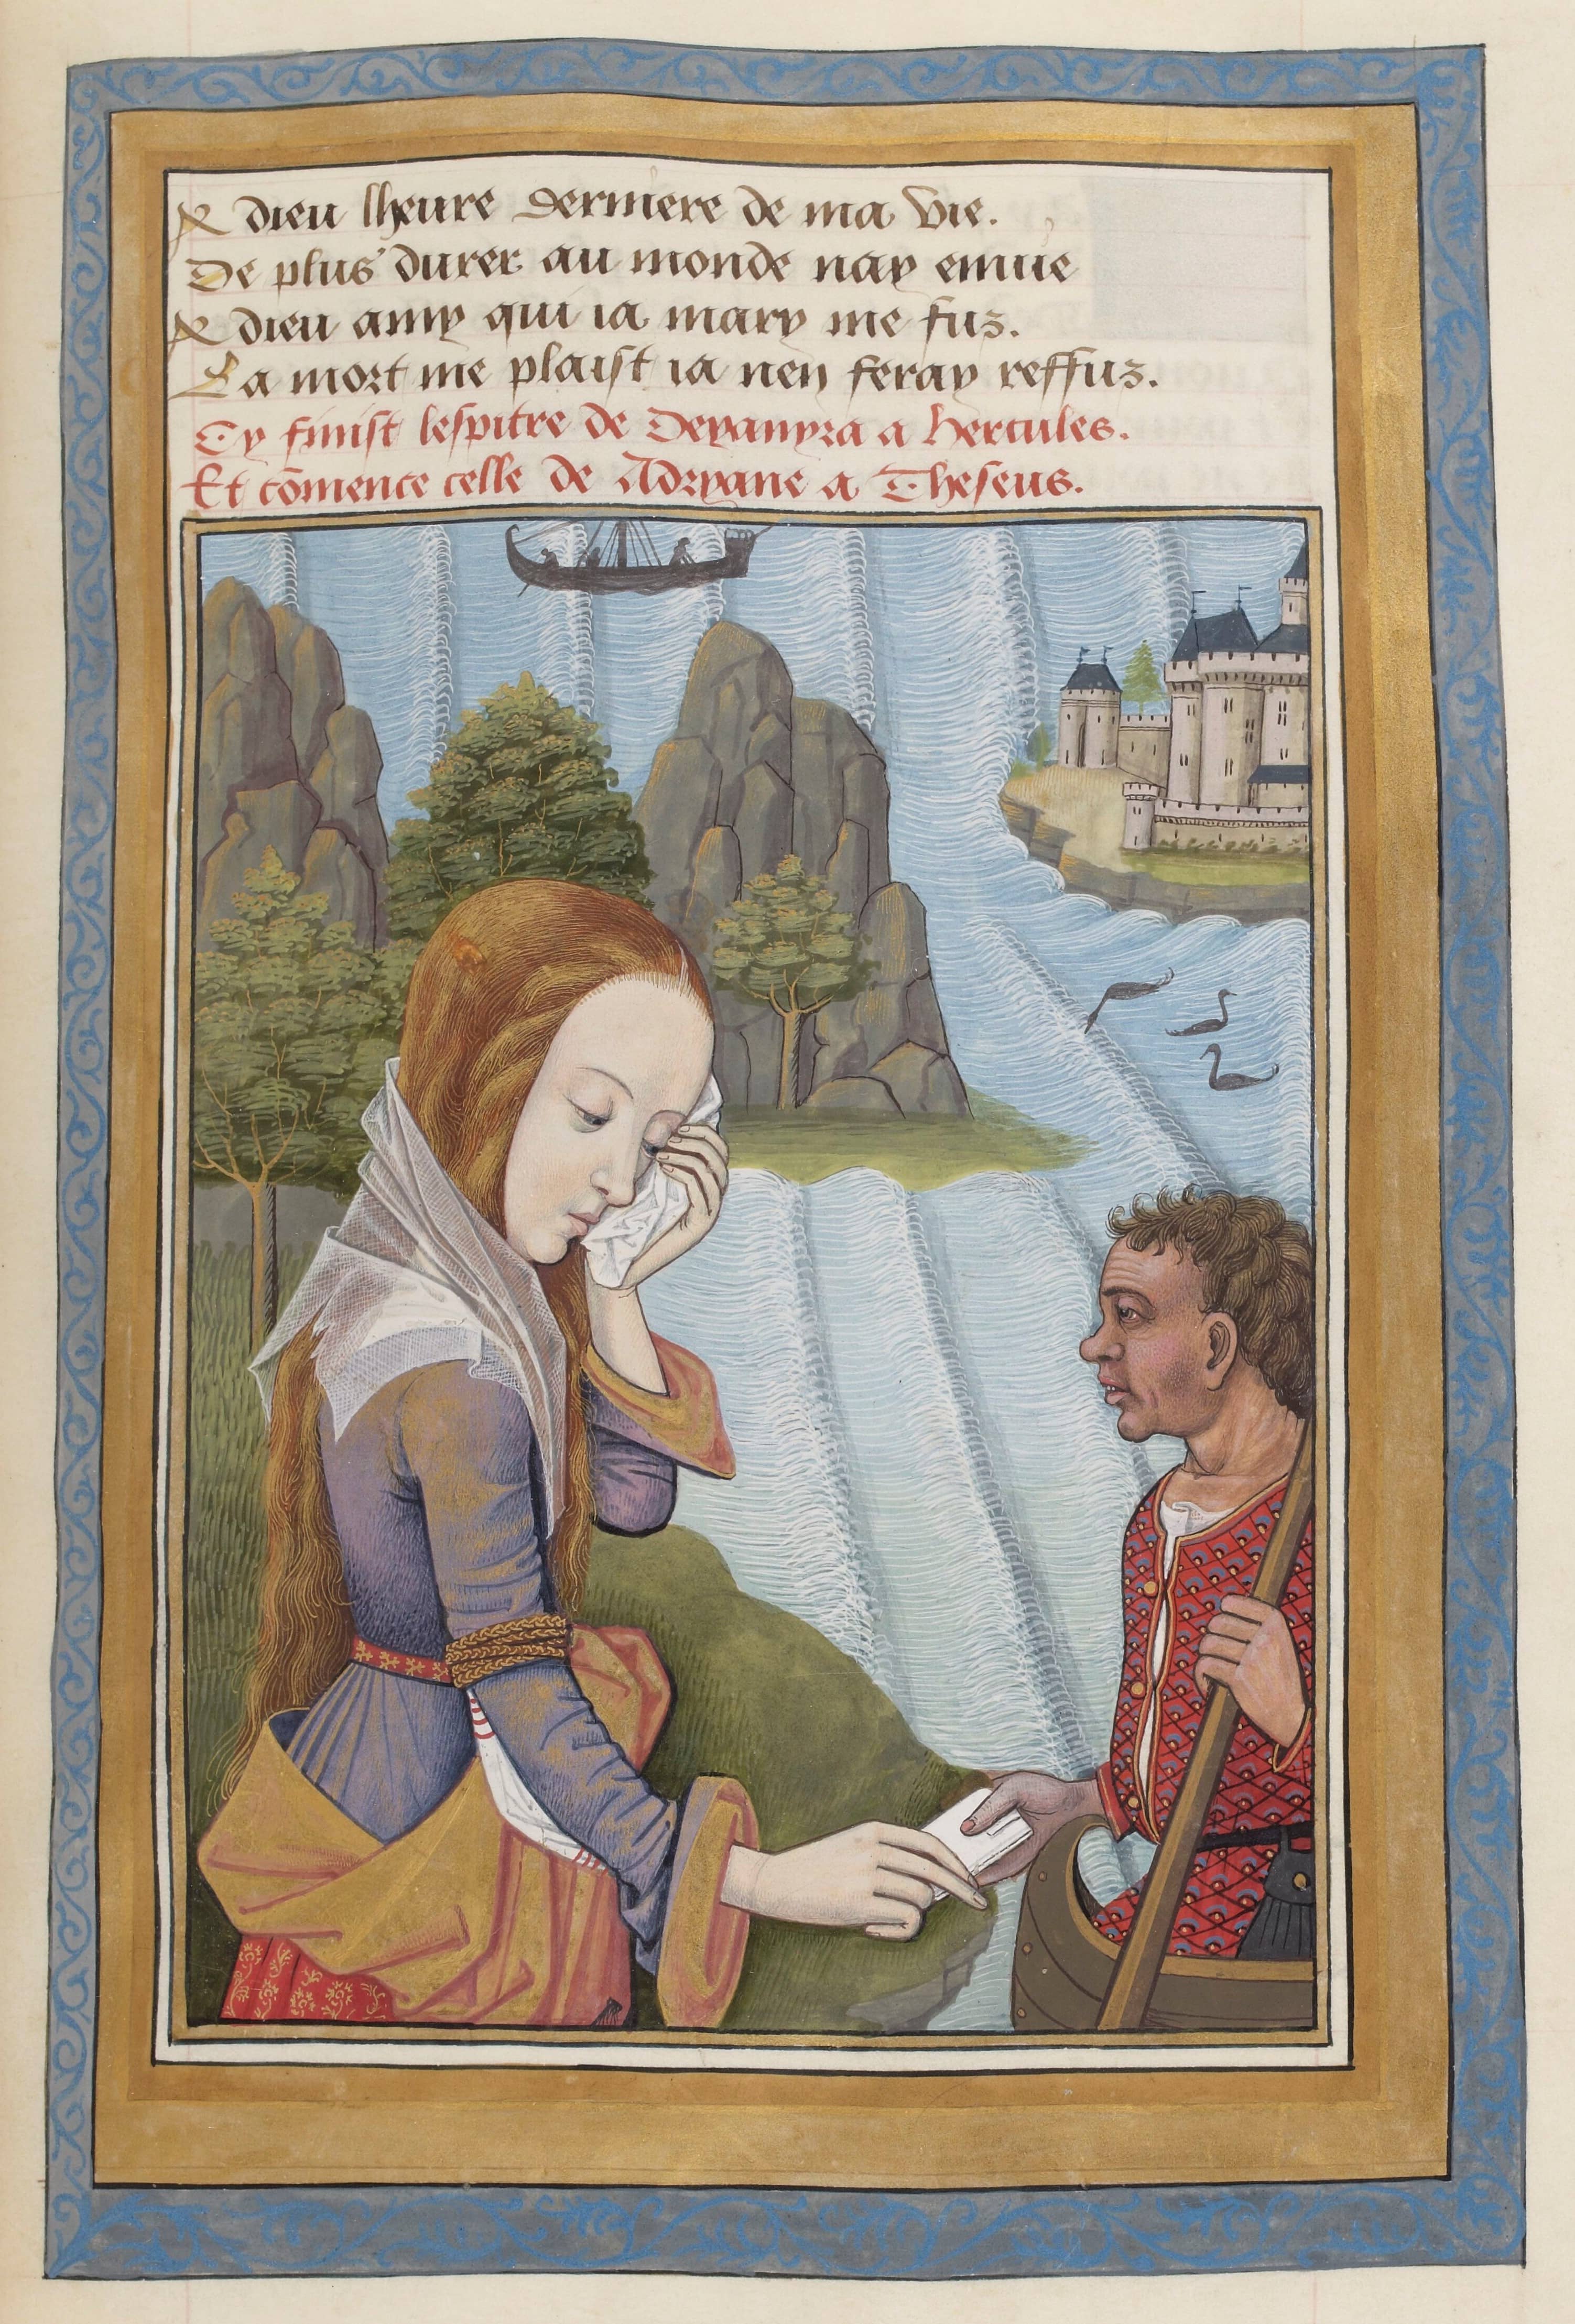 A dieu lheure derniere de ma vie.
De plus durer au monde nay enuie
A dieu amy qui ia mary me fuz.
La mort me plaist ia nen feray reffuz.
Cy finist lespitre de Deyanyra a hercules.
Et cōmence celle de Adryane a Theseus.